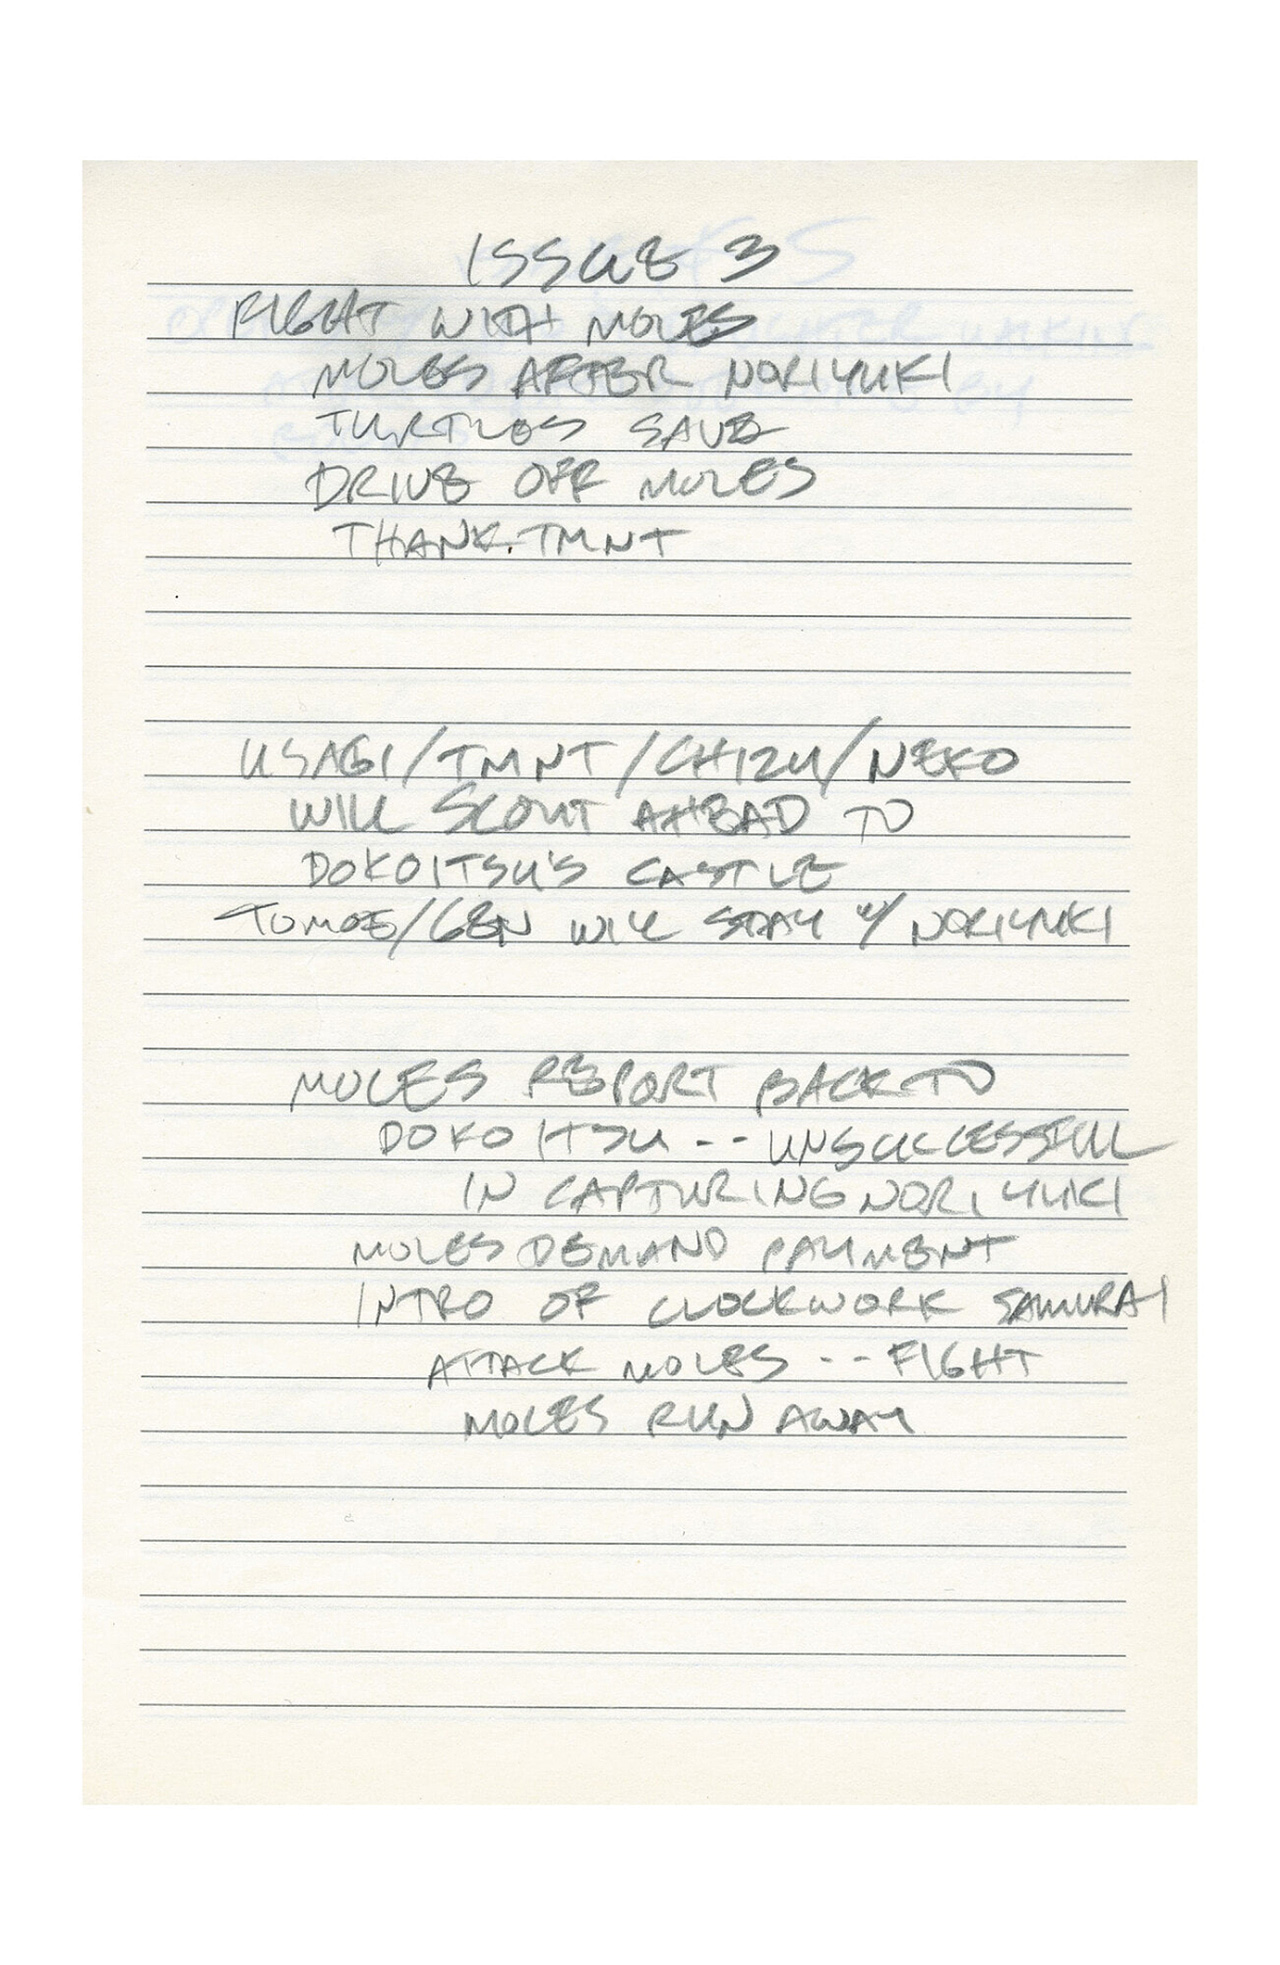 ISSUE 3
FIGHT WITH MOLES
MOLES AFTER NORIYUKI
TURTLES SAVE
DRIVE OFF MOLES
THANK TMNT
USAGI/TMNT/CHIZU/NEKO
WILL SCOUT AHEAD TO
DOKOITSU'S CASTLE
TOMOE/GEN WILL STAY W/ NORIYUKI
MOLES REPORT BACK TO
DOKOITSU -- UNSUCCESSFUL
IN CAPTURING NORIYUKI
MOLES DEMAND PAYMENT
INTRO OF CLOCKWORK SAMURAI
ATTACK MOLES -- FIGHT
MOLES RUN AWAY